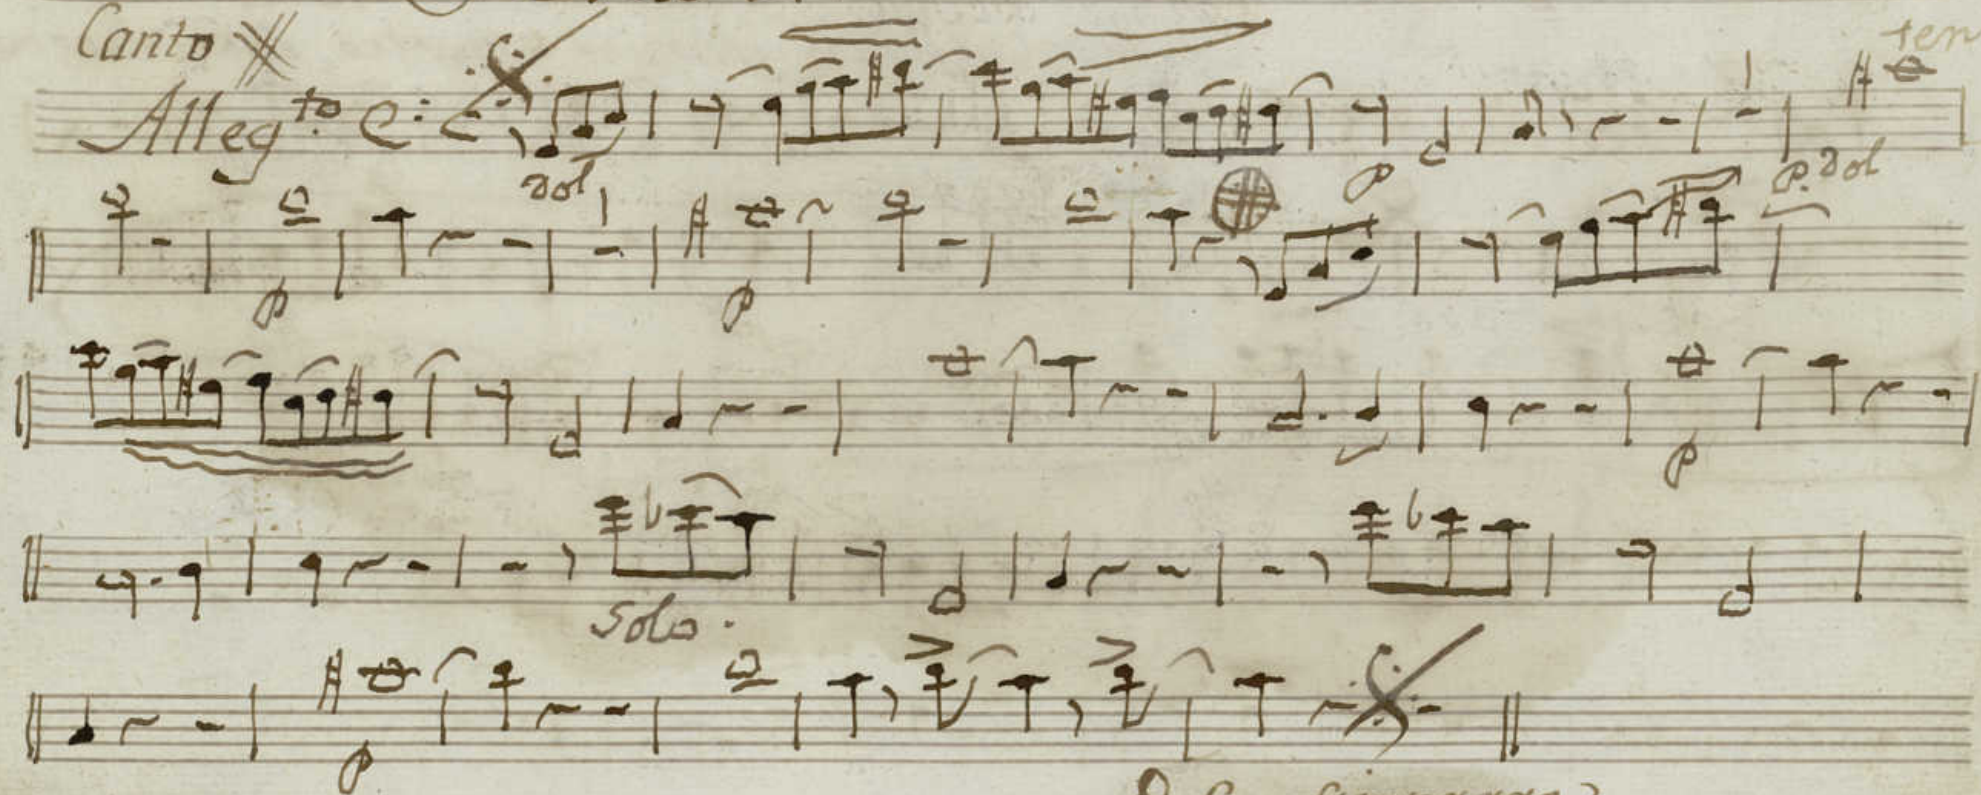 Canto
ten
Alleg.to
dol
p
p. dol
p
p
p
Solo.
p